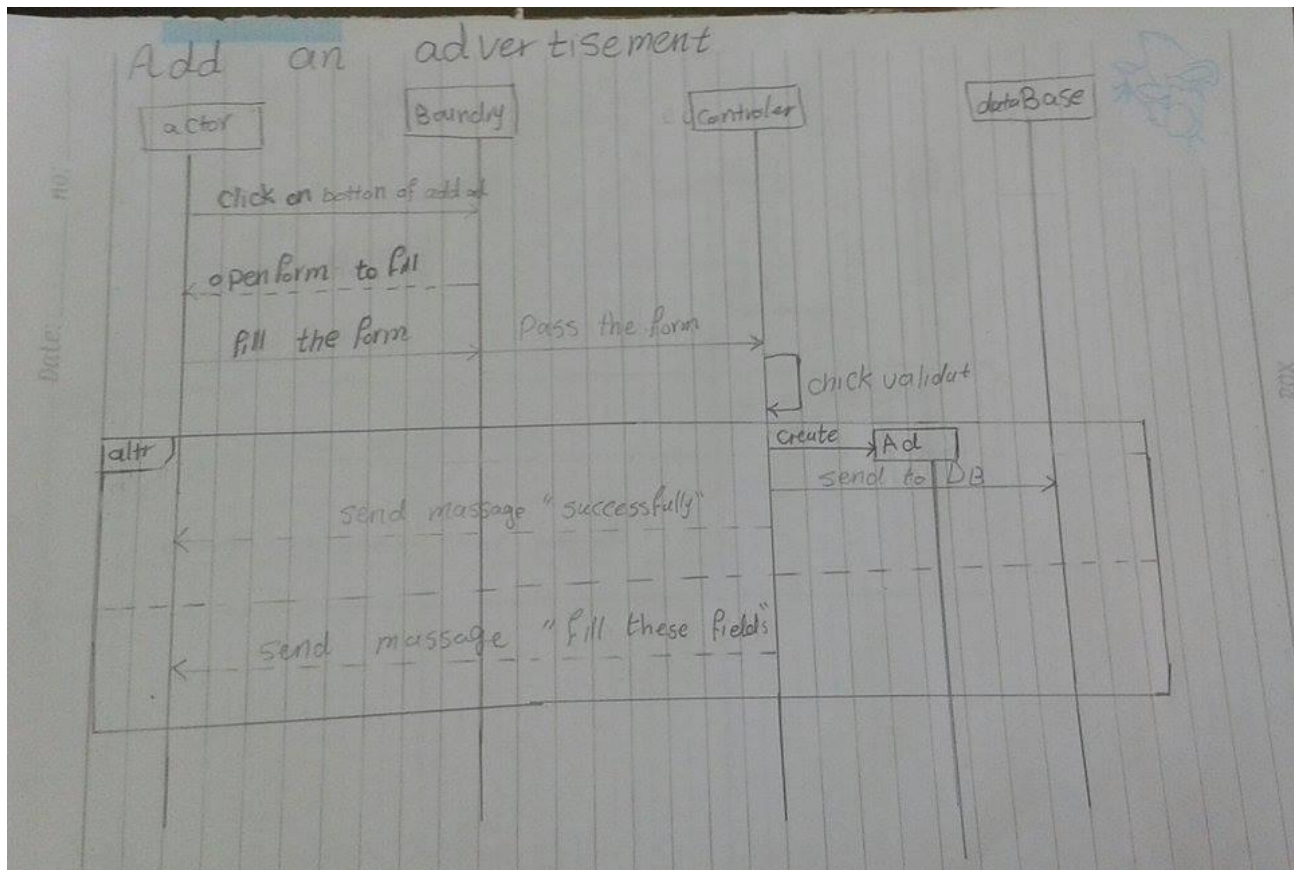 Add an advertisement
actor
Boundry
Controler
dataBase
Click on botton of add ad
open form to fill
fill the form
Pass the form
chick validat
altr
Create
Ad
send to DB
send massage "successfully"
send massage "fill these fields"
no:
Date: